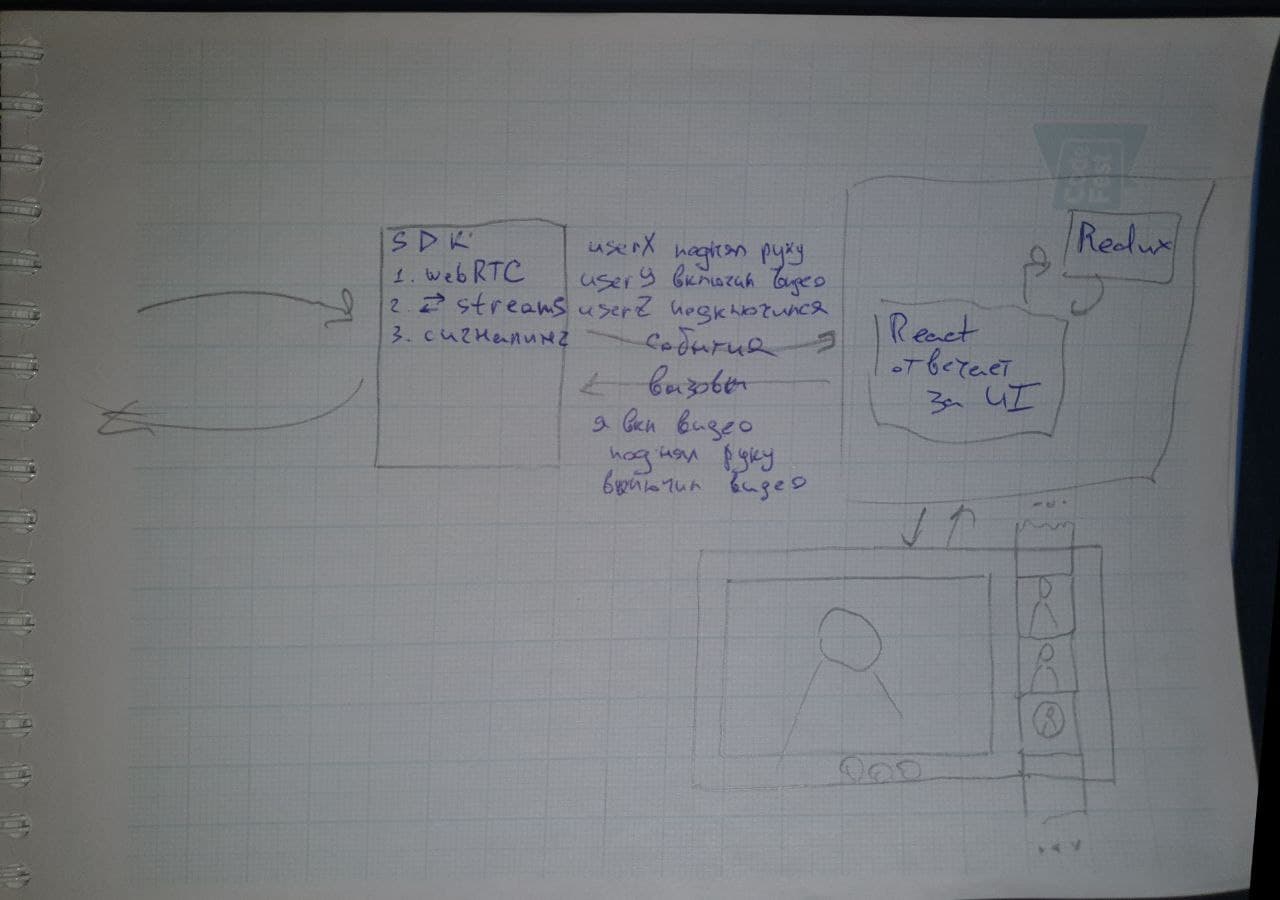 SDK
1. webRTC
2. ⇄ streams
3. сигналинг
userX поднял руку
userY включил видео
userZ подключился
события
вызовы
я вкл видео
поднял руку
включил видео
Redux
React
отвечает
за UI